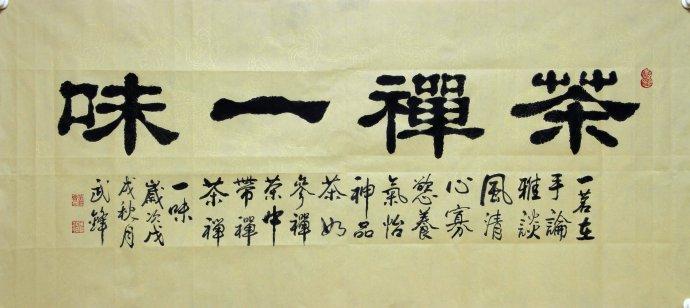 茶禪一味
一茗在
手論
雅談
風清
心寡
慾養
氣怡
神品
茶如
參禪
茶中
帶禪
茶禪
一味
歲次戊
戌秋月
武鋒